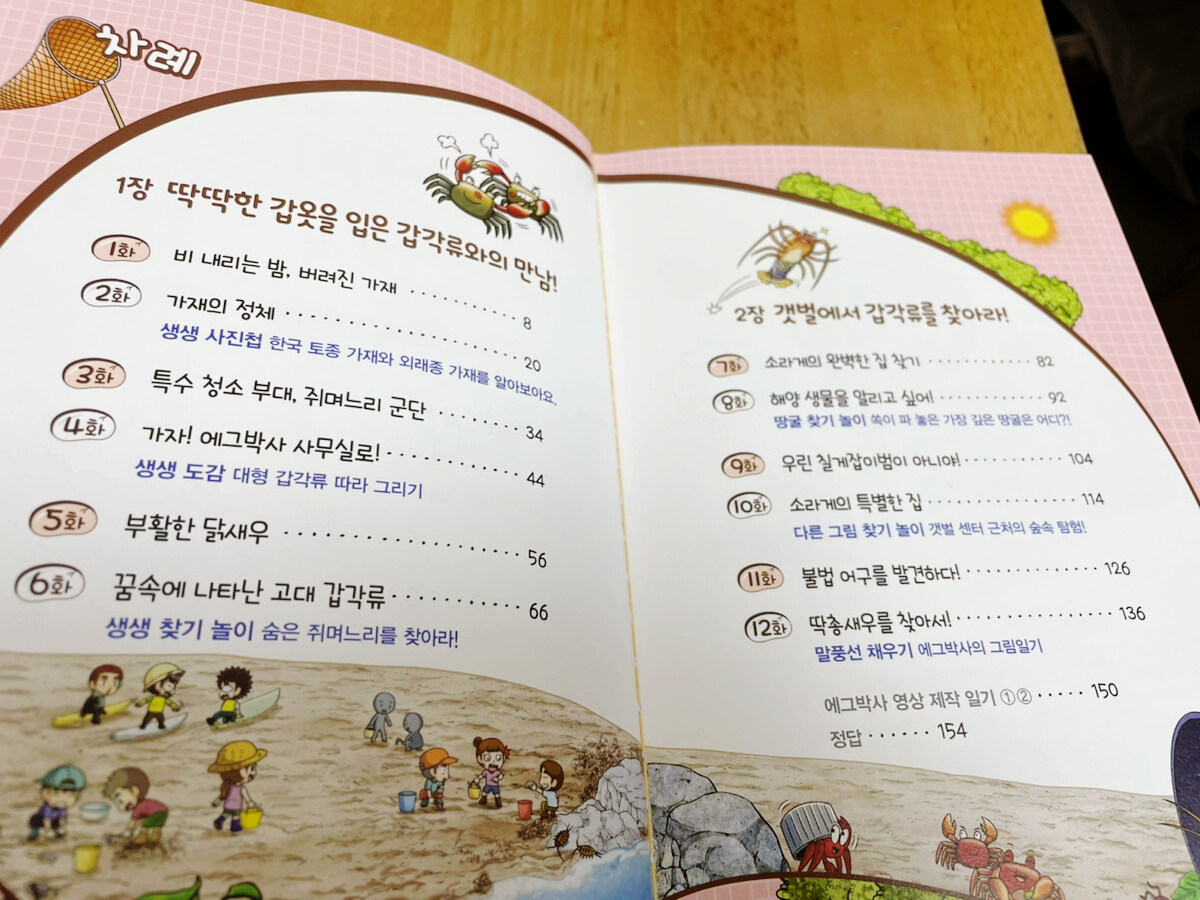 차례
1장 딱딱한 갑옷을 입은 갑각류와의 만남!
1화 비 내리는 밤, 버려진 가재 8
2화 가재의 정체 20
생생 사진첩 한국 토종 가재와 외래종 가재를 알아보아요.
3화 특수 청소 부대, 쥐며느리 군단 34
4화 가자! 에그박사 사무실로! 44
생생 도감 대형 갑각류 따라 그리기
5화 부활한 닭새우 56
6화 꿈속에 나타난 고대 갑각류 66
생생 찾기 놀이 숨은 쥐며느리를 찾아라!
2장 갯벌에서 갑각류를 찾아라!
7화 소라게의 완벽한 집 찾기 82
8화 해양 생물을 알리고 싶어! 92
땅굴 찾기 놀이 쏙이 파 놓은 가장 깊은 땅굴은 어디?!
9화 우린 칠게잡이범이 아니야! 104
10화 소라게의 특별한 집 114
다른 그림 찾기 놀이 갯벌 센터 근처의 숲속 탐험!
11화 불법 어구를 발견하다! 126
12화 딱총새우를 찾아서! 136
말풍선 채우기 에그박사의 그림일기
에그박사 영상 제작 일기 ①② 150
정답 154